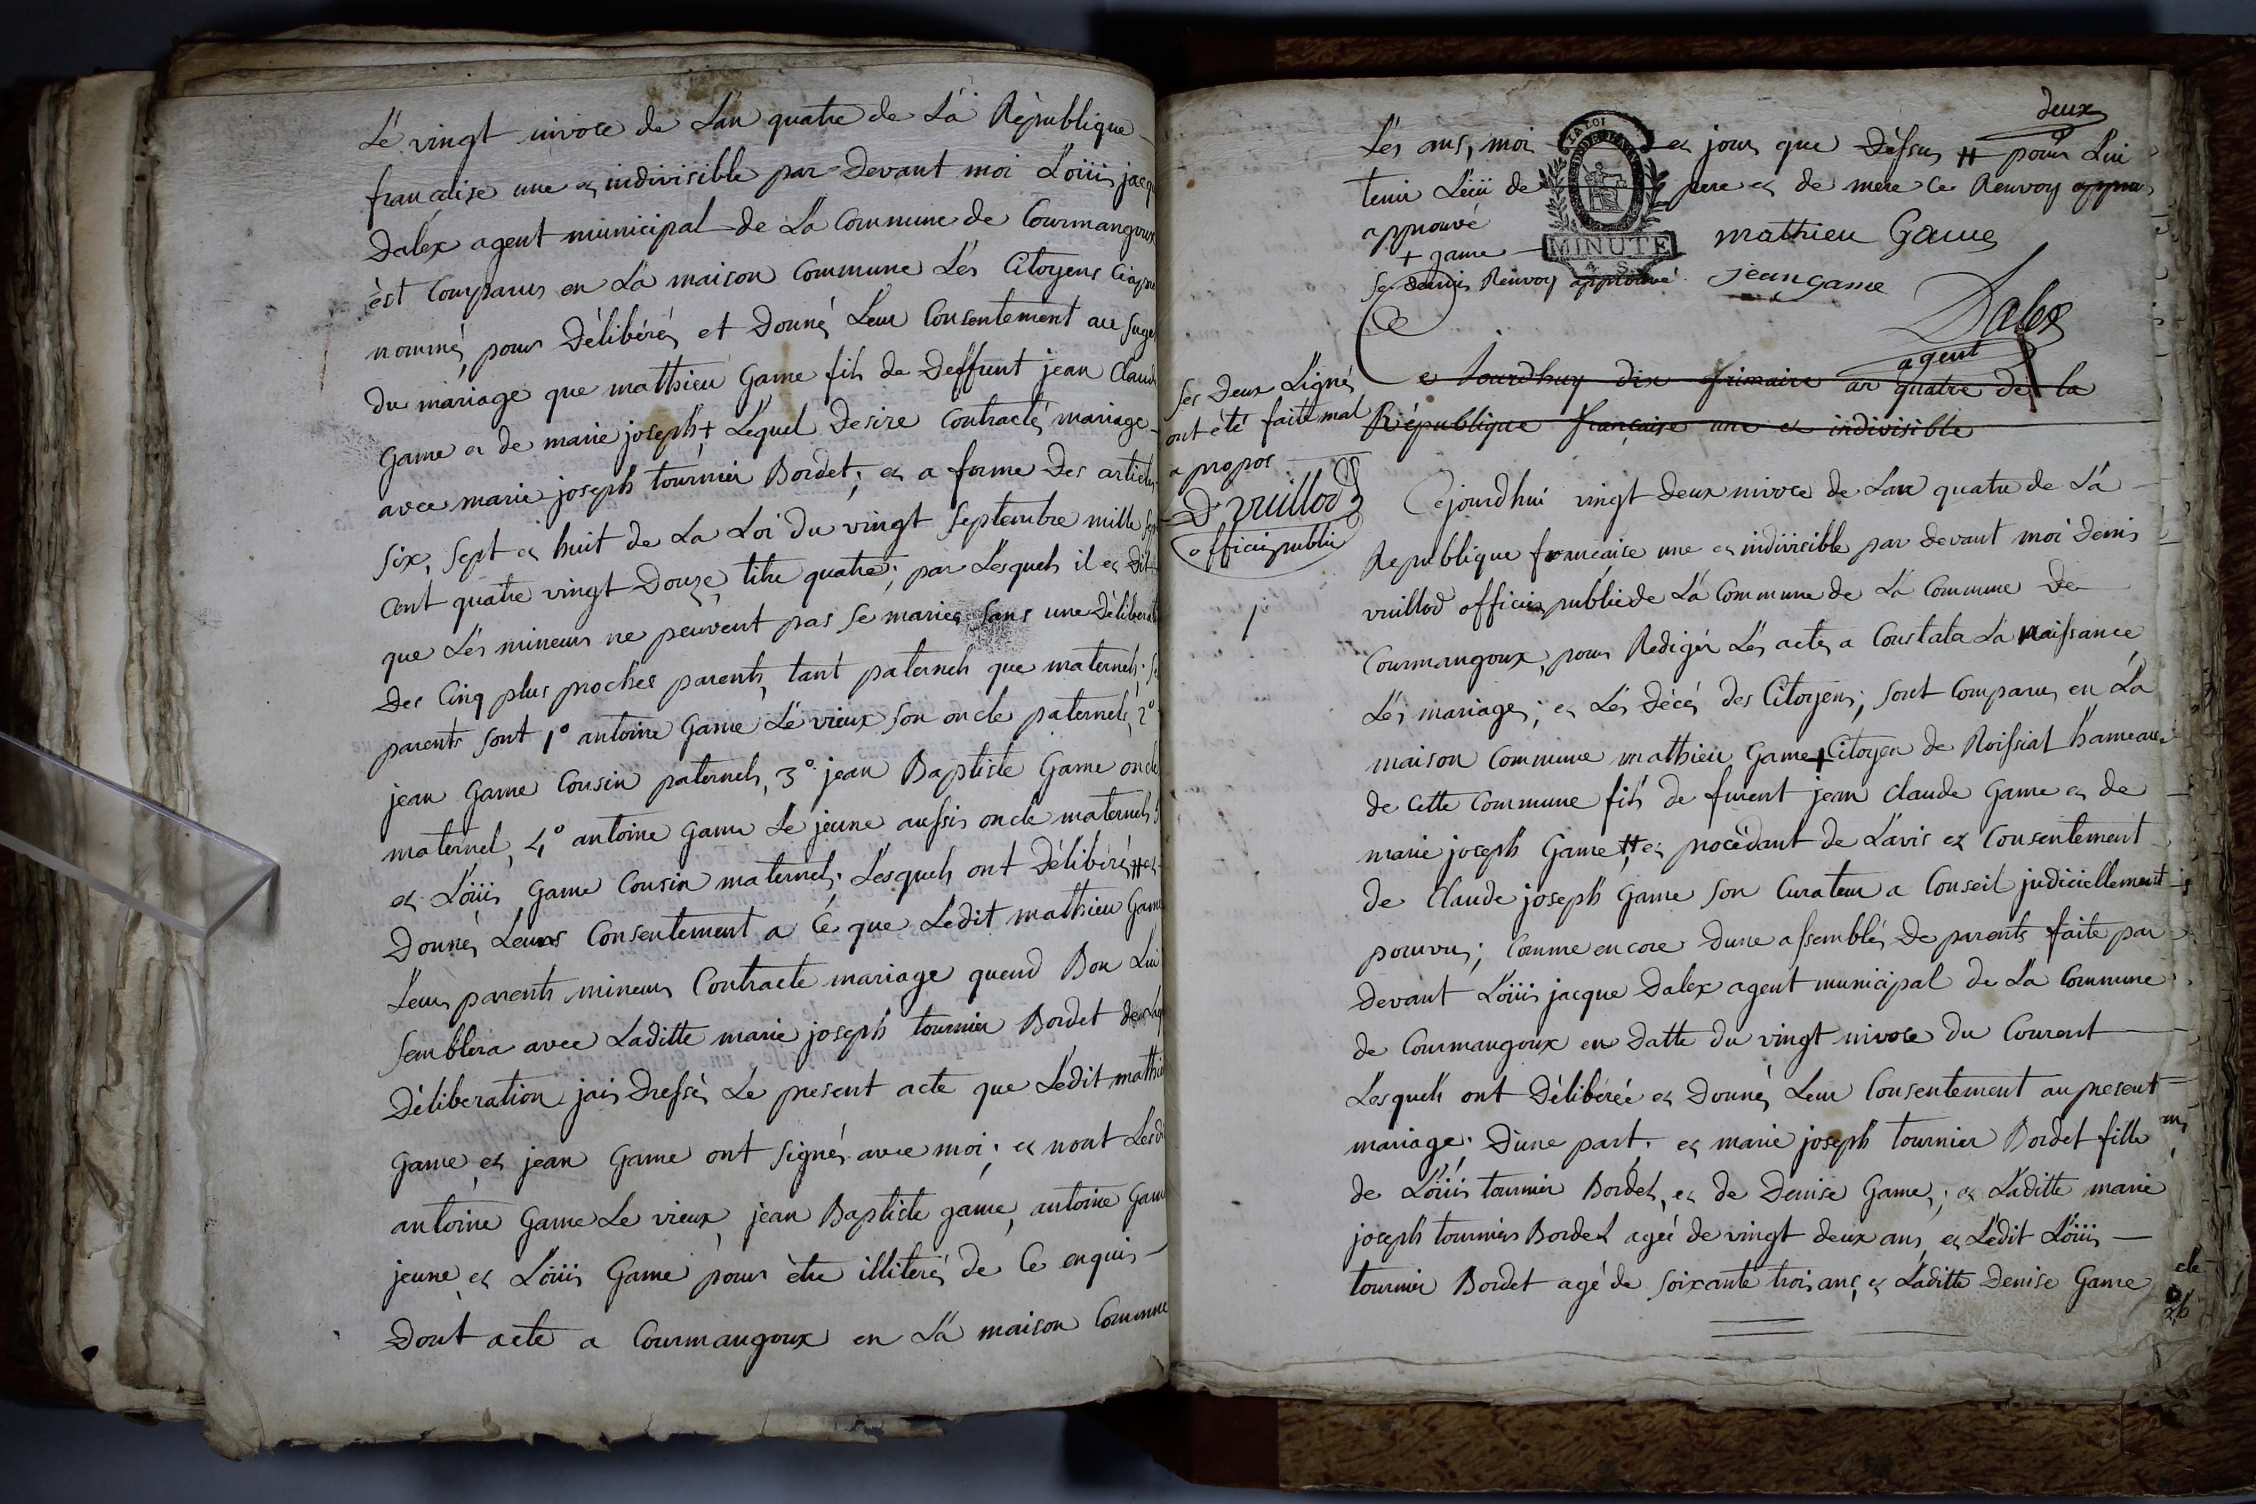 Lé vingt nivose de L'an quatre de Lâ République
françaîse une et indivisible par Devant moi Loüis jacq
Dalex agent municipal de La Commune de Courmangoux
èst Comparus en La maison Commune Lés Citoyens Ciapre
nommés, pour Délibérés et Donnés Leur Consentement au Suget
du mariage que mathieu Game fils de Deffunt jean Claude
Game et de marie joseph + Lequel Desire Contractés mariage
avec marie joseph tournier Bordet; et a forme Des articles
Six, Sept et huit de La Loi du vingt Septembre mille Sept
Cent quatre vingt Douze, titre quatre; par Lesquels il et Dit
que Lés mineurs ne peuvent pas Sé mariés Sans une Déliberat
Des Cinq plus proches parents, tant paternels que maternels. Se
parents Sont 1° antoine Game Lé vieux Son oncle paternels, 2°
jean Game Cousin paternels, 3° jean Baptiste Game oncle
maternel, 4° antoine Game Le jeune aussis oncle maternels 5
et Loüis Game Cousin maternels. Lesquels ont Délibérés # et
Donnés Leurs Consentement a Cé que Ledit mathieu Game
Leurs parents mineurs Contracte mariage quend Bon Lui
Semblera avec Laditte marie joseph tournier Bordet de Laq
Déliberation jais Dressé Le present acte que Ledit mathieu
Game, et jean Game ont Signés avec moi; et nont Lesdi
antoine Game Le vieux, jean Baptiste game, antoine Game
jeune et Loüis Game pour ètre illiterés de Ce enquis
Dont acte a Courmangoux en La maison Commune
deux
Lés ans, moi et jour que Dessus # pour Lui
LA LOI
tenir Leiü de pere et de mere Ce Renvoy appro
approuvé
+ game
MINUTE
4. S.
mathieu Game
Se Renvoy approuvé
jean game
Dalex
agent
Ce Jourdhuy dix frimaire an quatre de la
République française une et indivisible
Ses Deux Lignés
ont été faite mal
a propos
D vuillod
officié public
1
Cejourdhui vingt Deux nivose de Lan quatre de La
Republique francaise une et indivisible par devant moi Denis
vuillod officier publicde Lá Commune de La Commune De
Courmangoux, pour Rediger Lés actes a Constata La Naissance,
Lés mariages; et Lés Décés des Citoyens; Sont Comparus en Lá
maison Commune mathieu Game + Citoyen de Roissiat hameau
de Cette Commune fils de furent jean Claude Game et de
marie joseph Game # et procédant de Lavis et Consentement
de Claude joseph Game Son Curateur a Conseil judiciellement
pourvu; Comme encore Dune assemblés De parents faite par
Devant Loüis jacque Dalex agent municipal de La Commune
de Courmangoux en Datte du vingt nivose du Courent
Lesquels ont Délibérée et Donnés Leur Consentement au present
mariage; D'une part. et marie joseph tournier Bordet fille
de Loüis tournier Bordet, et de Denise Game; et Laditte marie
joseph tournier Bordet ageé de vingt deux ans, et Lédit Loüis
tournier Bordet agé de Soixante trois ans, et Laditte Denise Game